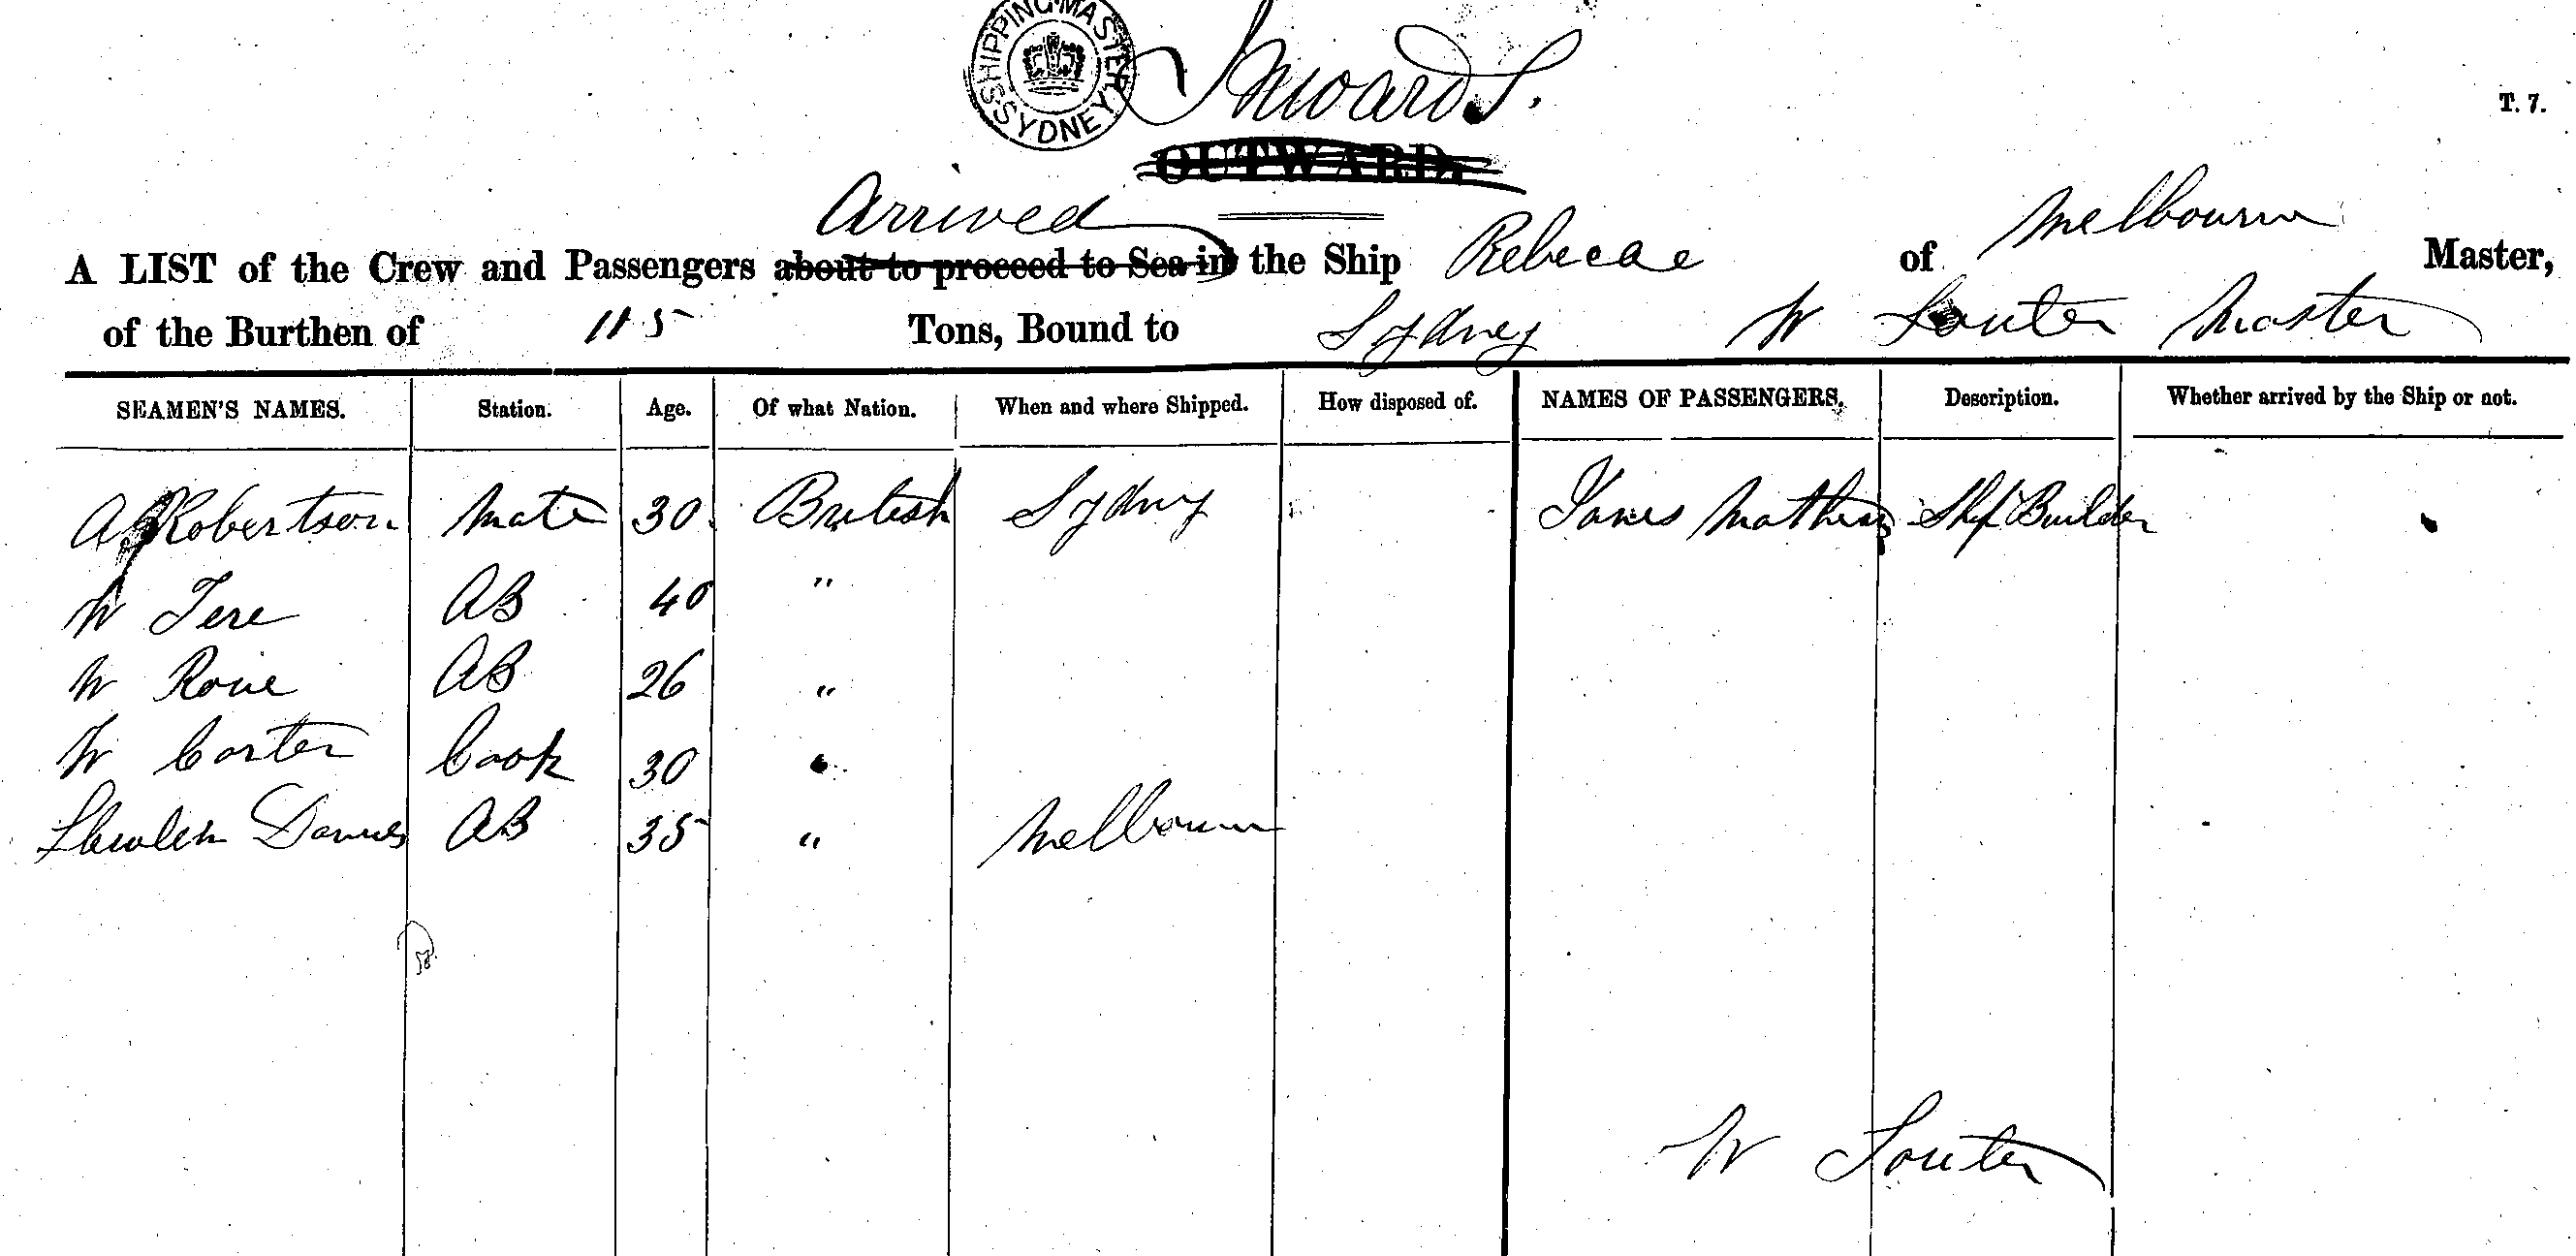 SHIPPING MASTER SYDNEY
Inwards.
T. 7.
OUTWARD.
Arrived
A LIST of the Crew and Passengers about to proceed to Sea in the Ship Rebecae of Melbourne Master,
of the Burthen of 115 Tons, Bound to Sydney W Souter Master
SEAMEN'S NAMES. Station. Age. Of what Nation. When and where Shipped. How disposed of. NAMES OF PASSENGERS. Description. Whether arrived by the Ship or not.
A Robertson Mate 30 British Sydney James Mathews Ship Builder
W Tere AB 40 "
W AB 26 "
W Carter Cook 30 "
Davies AB 35 " Melbourne
W Souter